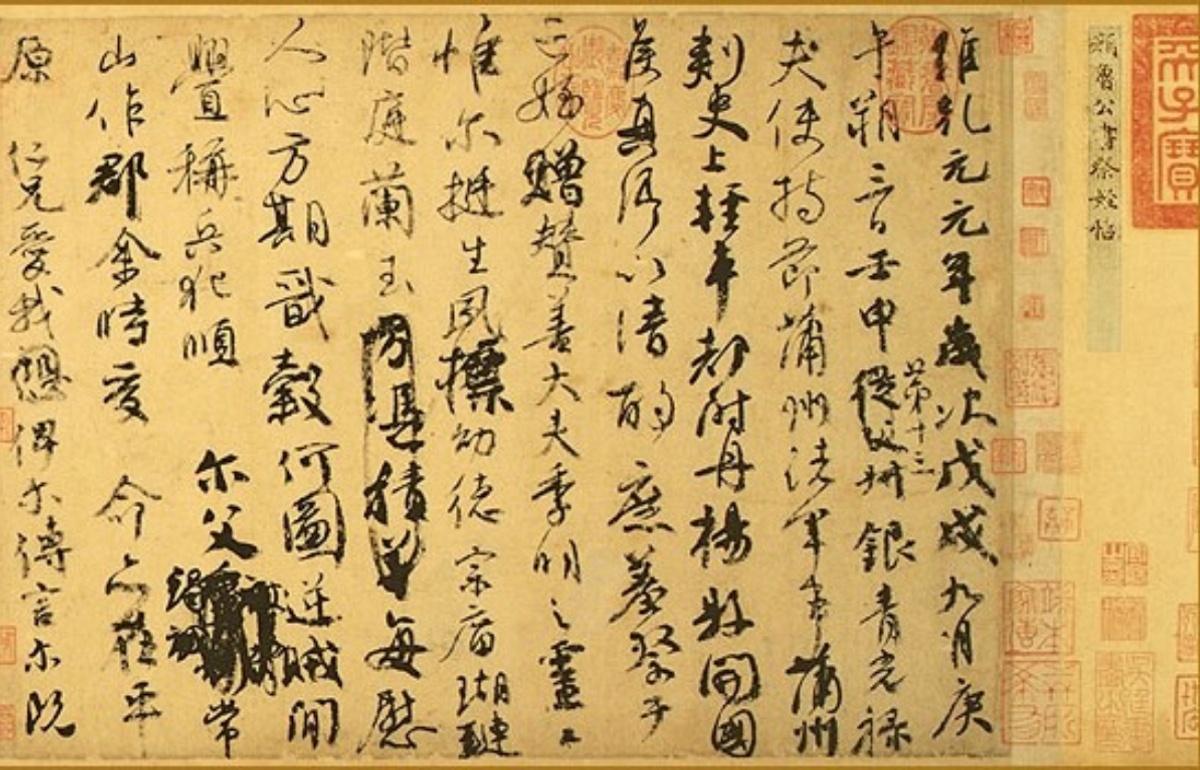 顏魯公書祭姪帖
維乾元元年歲次戊戌九月庚
午朔三日壬申第十三從父銀青光祿
夫使持節蒲州諸軍事蒲州
刺史上輕車都尉丹楊縣開國
侯真卿以清酌庶羞祭于
亡姪贈贊善大夫季明之靈曰
惟尔挺生夙標幼德宗廟瑚璉
階庭蘭玉方憑積善每慰
人心方期戩穀何圖逆賊閒
釁稱兵犯順 尔父竭誠常
山作郡余時受 命亦在平
原 仁兄愛我俾尔傳言尔既